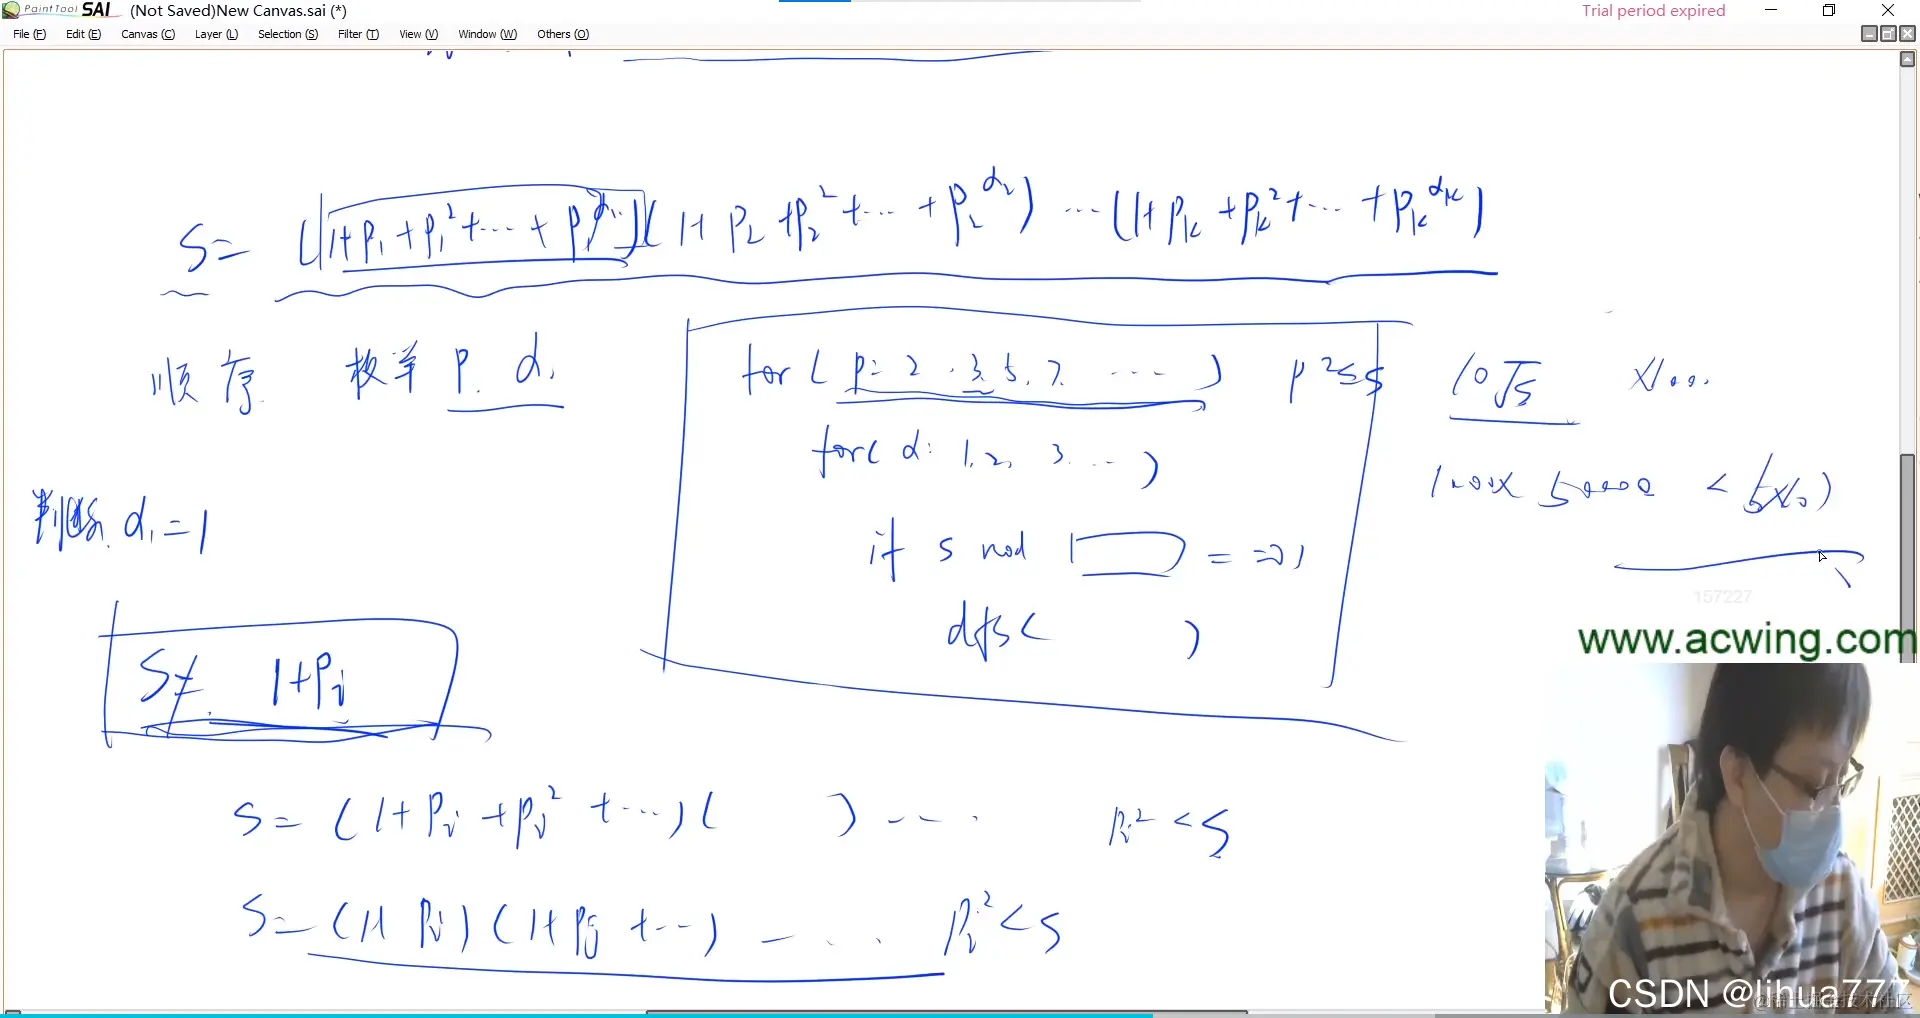 PaintTool SAI (Not Saved)New Canvas.sai (*) Trial period expired
File (F) Edit (E) Canvas (C) Layer (L) Selection (S) Filter (T) View (V) Window (W) Others (O)
S= (1+p₁+p₁²+···+p₁^α₁)(1+p₂+p₂²+···+p₂^α₂)···(1+pₖ+pₖ²+···+pₖ^αₖ)
顺序 枚举 p. α.
for ( p: 2, 3, 5, 7, ··· ) p²≤S 10√S
for( α: 1, 2, 3, ··· )
判断 α₁=1
if S mod
dfs( )
S≠ 1+pᵢ
157227
www.acwing.com
S= (1+pᵢ+pᵢ²+···)( ) ···· pᵢ²<S
S= (1+pᵢ)(1+pⱼ+···) ···· pᵢ²<S
CSDN @lihua777